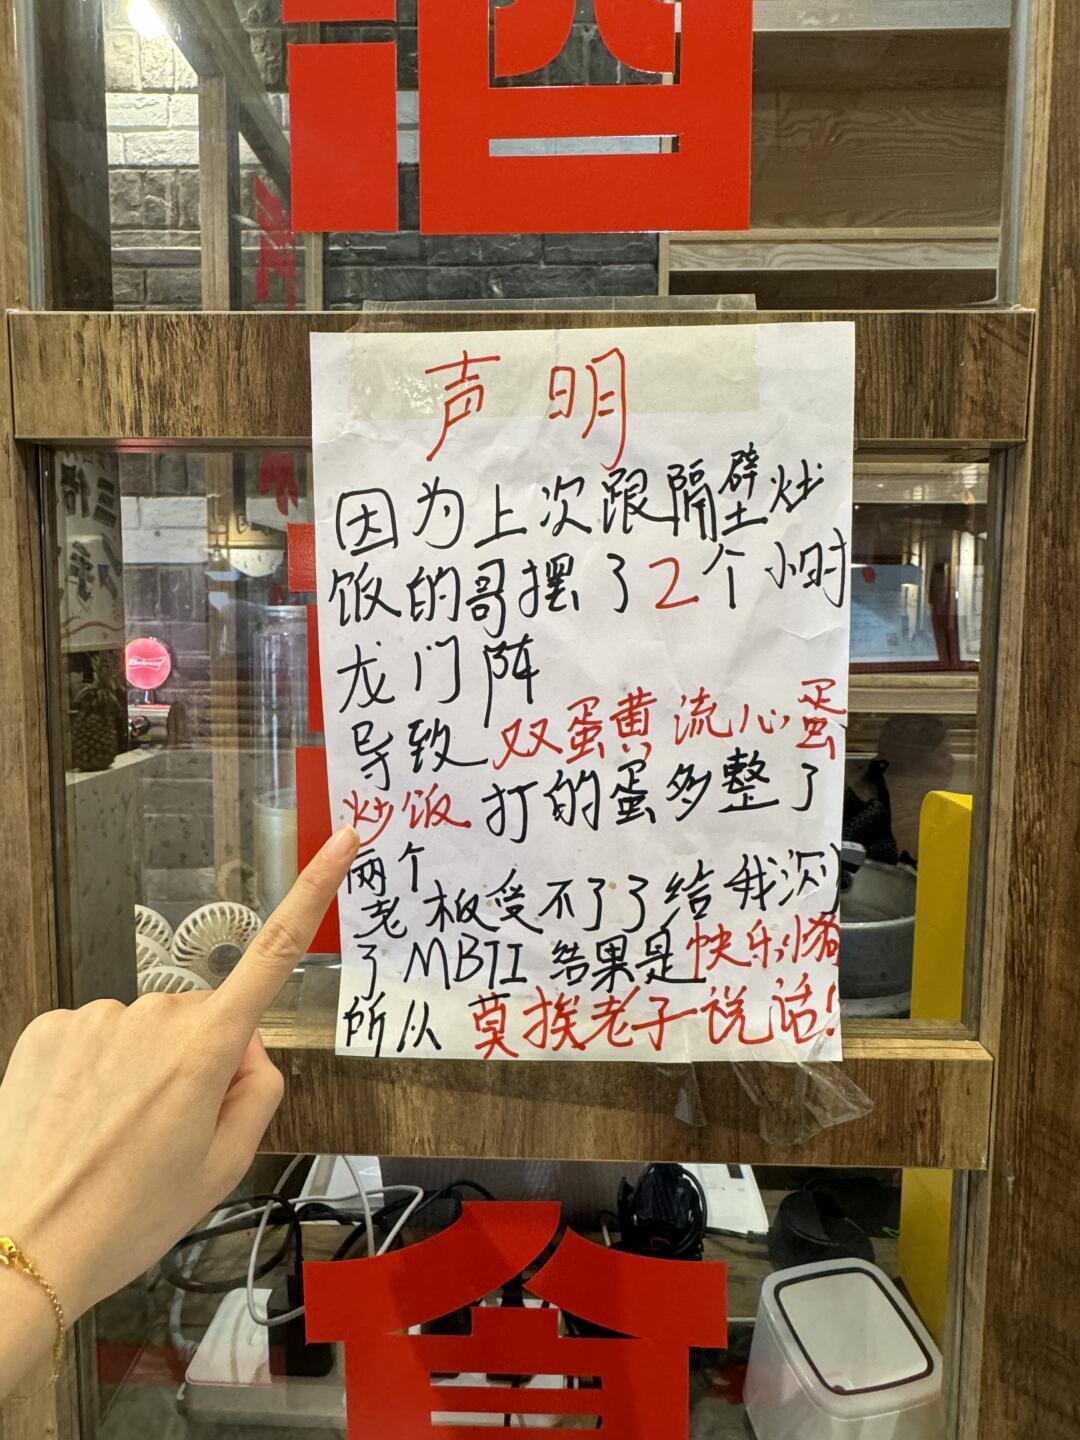 酒
声明
因为上次跟隔壁炒
饭的哥摆了2个小时
龙门阵
导致双蛋黄流心蛋
炒饭打的蛋多整了
两个
老板受不了了给我测
了MBTI结果是快乐小狗
所以莫挨老子说话!
Budweiser
食